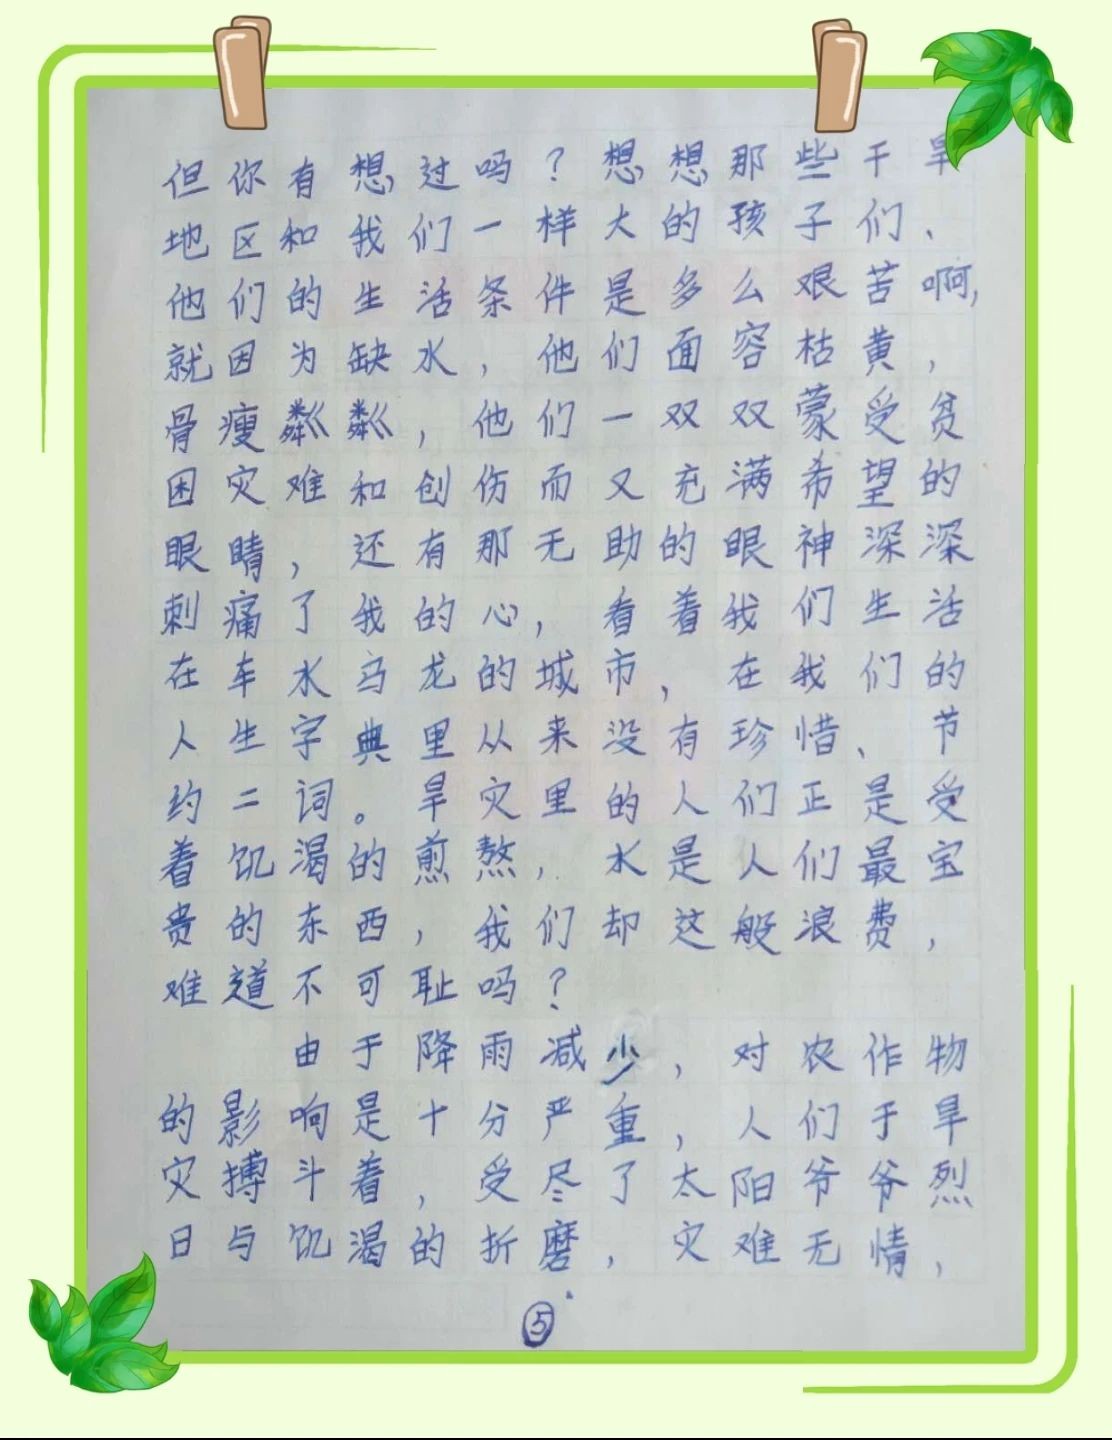 但你有想过吗？想想那些干旱
地区和我们一样大的孩子们、
他们的生活条件是多么艰苦啊，
就因为缺水，他们面容枯黄，
骨瘦粼粼，他们一双双蒙受贫
困灾难和创伤而又充满希望的
眼睛，还有那无助的眼神深深
刺痛了我的心，看着我们生活
在车水马龙的城市，在我们的
人生字典里从来没有珍惜、节
约二词。旱灾里的人们正是受
着饥渴的煎熬，水是人们最宝
贵的东西，我们却这般浪费，
难道不可耻吗？
由于降雨减少，对农作物
的影响是十分严重，人们于旱
灾搏斗着，受尽了太阳爷爷烈
日与饥渴的折磨，灾难无情，
⑤